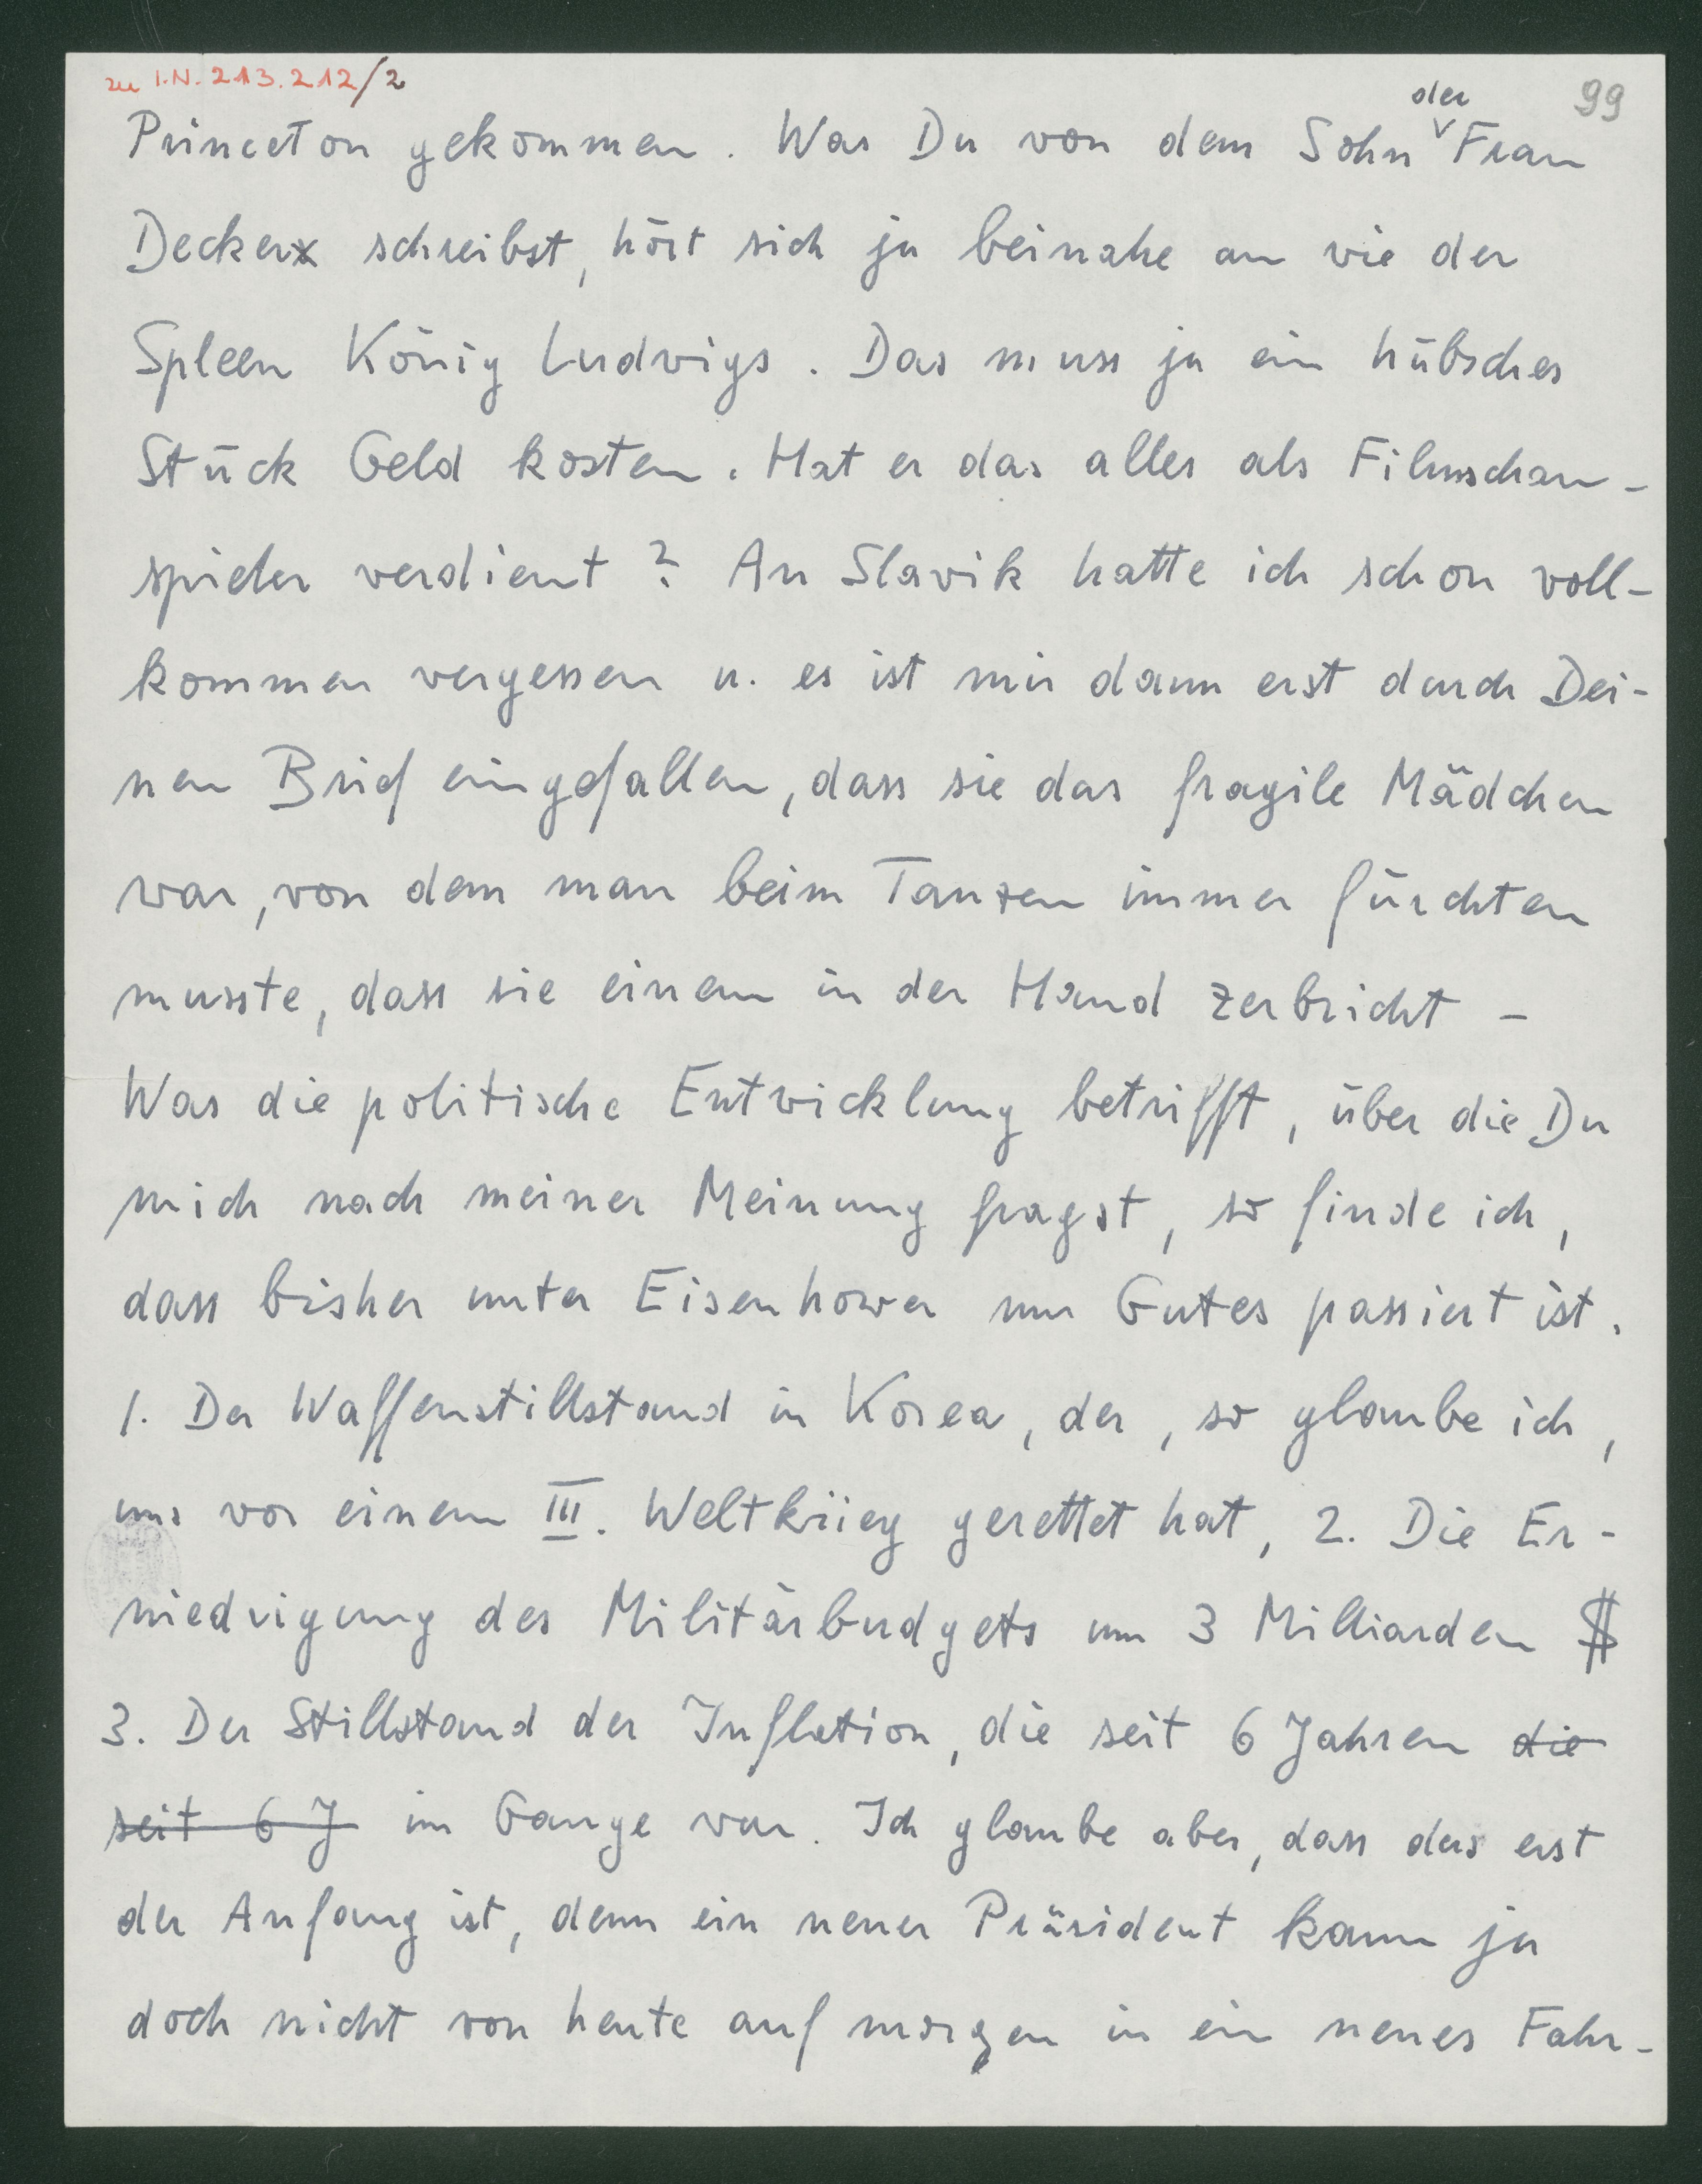 zu I.N. 213.212/2
99
der
Princeton gekommen. Was Du von dem Sohn ˅ Frau
Decker schreibst, hört sich ja beinahe an wie der
Spleen König Ludwigs. Das muss ja ein hübsches
Stück Geld kosten. Hat er das alles als Filmschau-
spieler verdient? An Slavik hatte ich schon voll-
kommen vergessen u. es ist mir dann erst durch Dei-
nen Brief eingefallen, dass sie das fragile Mädchen
war, von dem man beim Tanzen immer fürchten
musste, dass sie einem in der Hand zerbricht –
Was die politische Entwicklung betrifft, über die Du
mich nach meiner Meinung fragst, so finde ich,
dass bisher unter Eisenhower nur Gutes passiert ist.
1. Der Waffenstillstand in Korea, der, so glaube ich,
uns vor einem III. Weltkrieg gerettet hat, 2. Die Er-
niedrigung des Militärbudgets um 3 Milliarden $
3. Der Stillstand der Inflation, die seit 6 Jahren die
seit 6 J im Gange war. Ich glaube aber, dass das erst
der Anfang ist, denn ein neuer Präsident kann ja
doch nicht von heute auf morgen in ein neues Fahr-